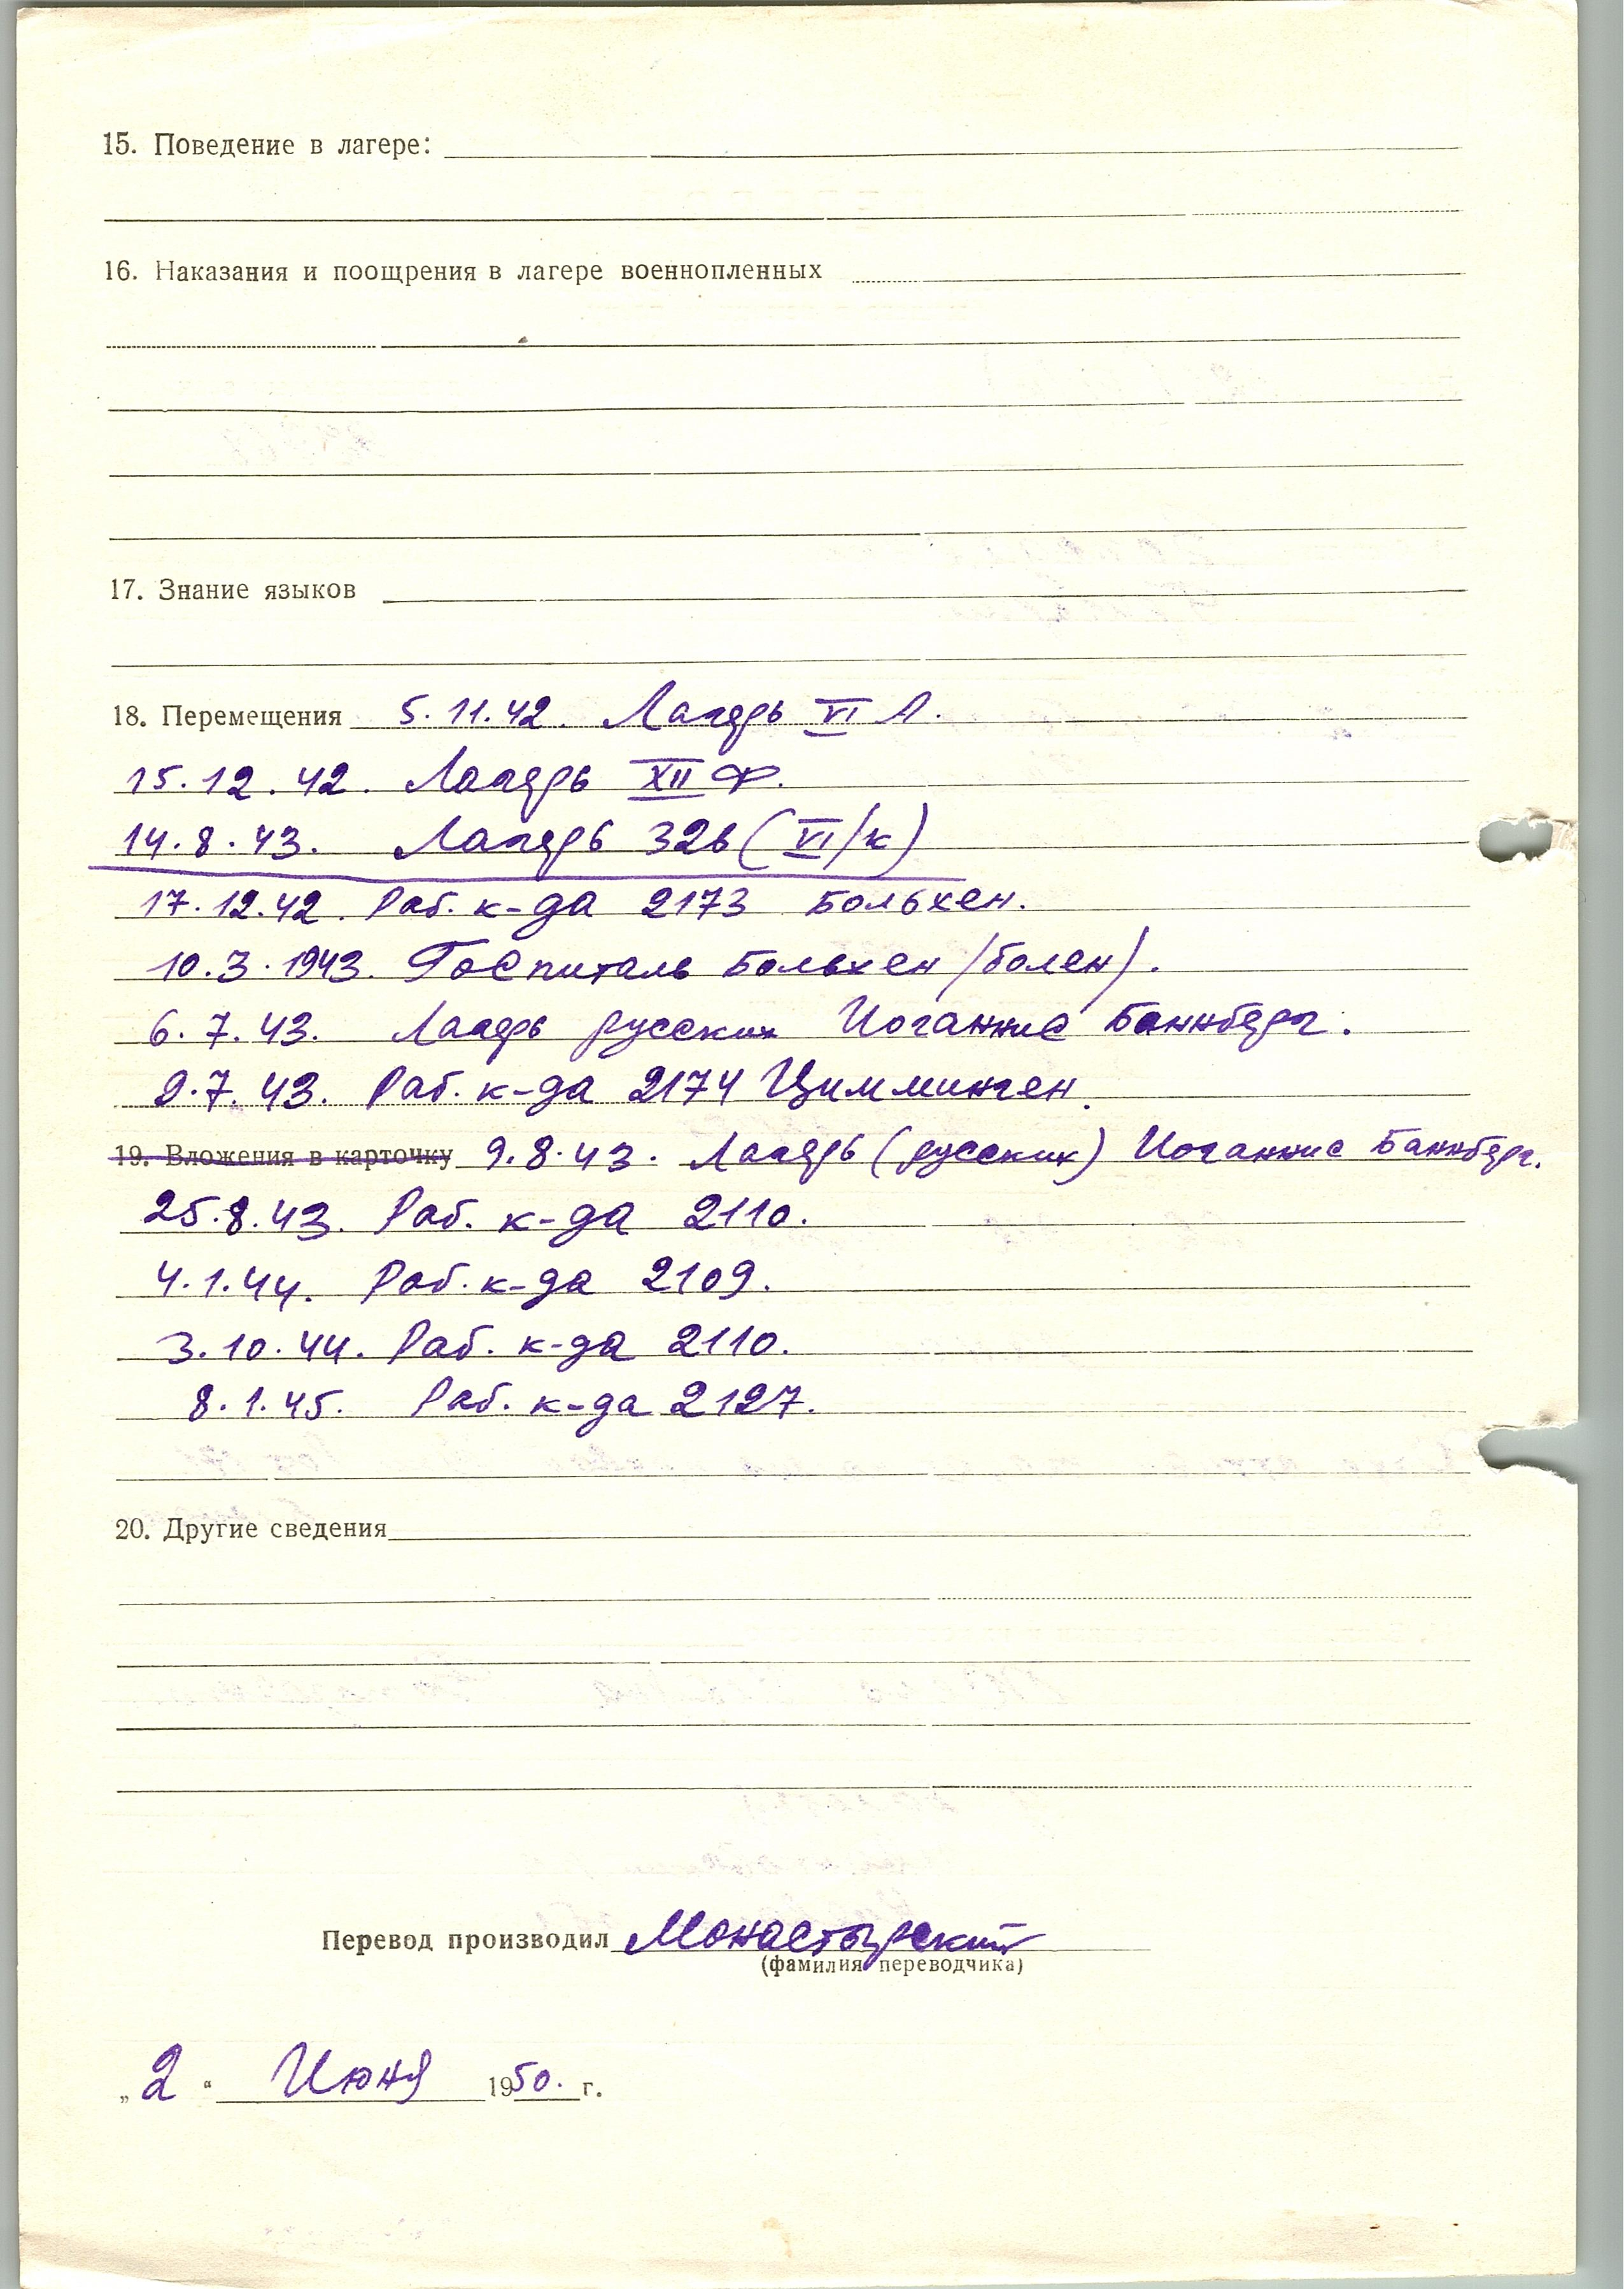 15. Поведение в лагере:
16. Наказания и поощрения в лагере военнопленных
17. Знание языков
18. Перемещения 5.11.42. Лагерь VI А.
15.12.42. Лагерь XII Ф.
14.8.43. Лагерь 326 (VI/к)
17.12.42. Раб. к-да 2173 Больхен.
10.3.1943. Госпиталь Больхен /болен/.
6.7.43. Лагерь русских Иоганнис Баннберг.
9.7.43. Раб. к-да 2174 Циммминген.
19. Вложения в карточку 9.8.43. Лагерь (русских) Иоганнис Баннберг.
25.8.43. Раб. к-да 2110.
4.1.44. Раб. к-да 2109.
3.10.44. Раб. к-да 2110.
8.1.45. Раб. к-да 2127.
20. Другие сведения
Перевод производил Монастырский
(фамилия переводчика)
„2“ Июня 1950. г.